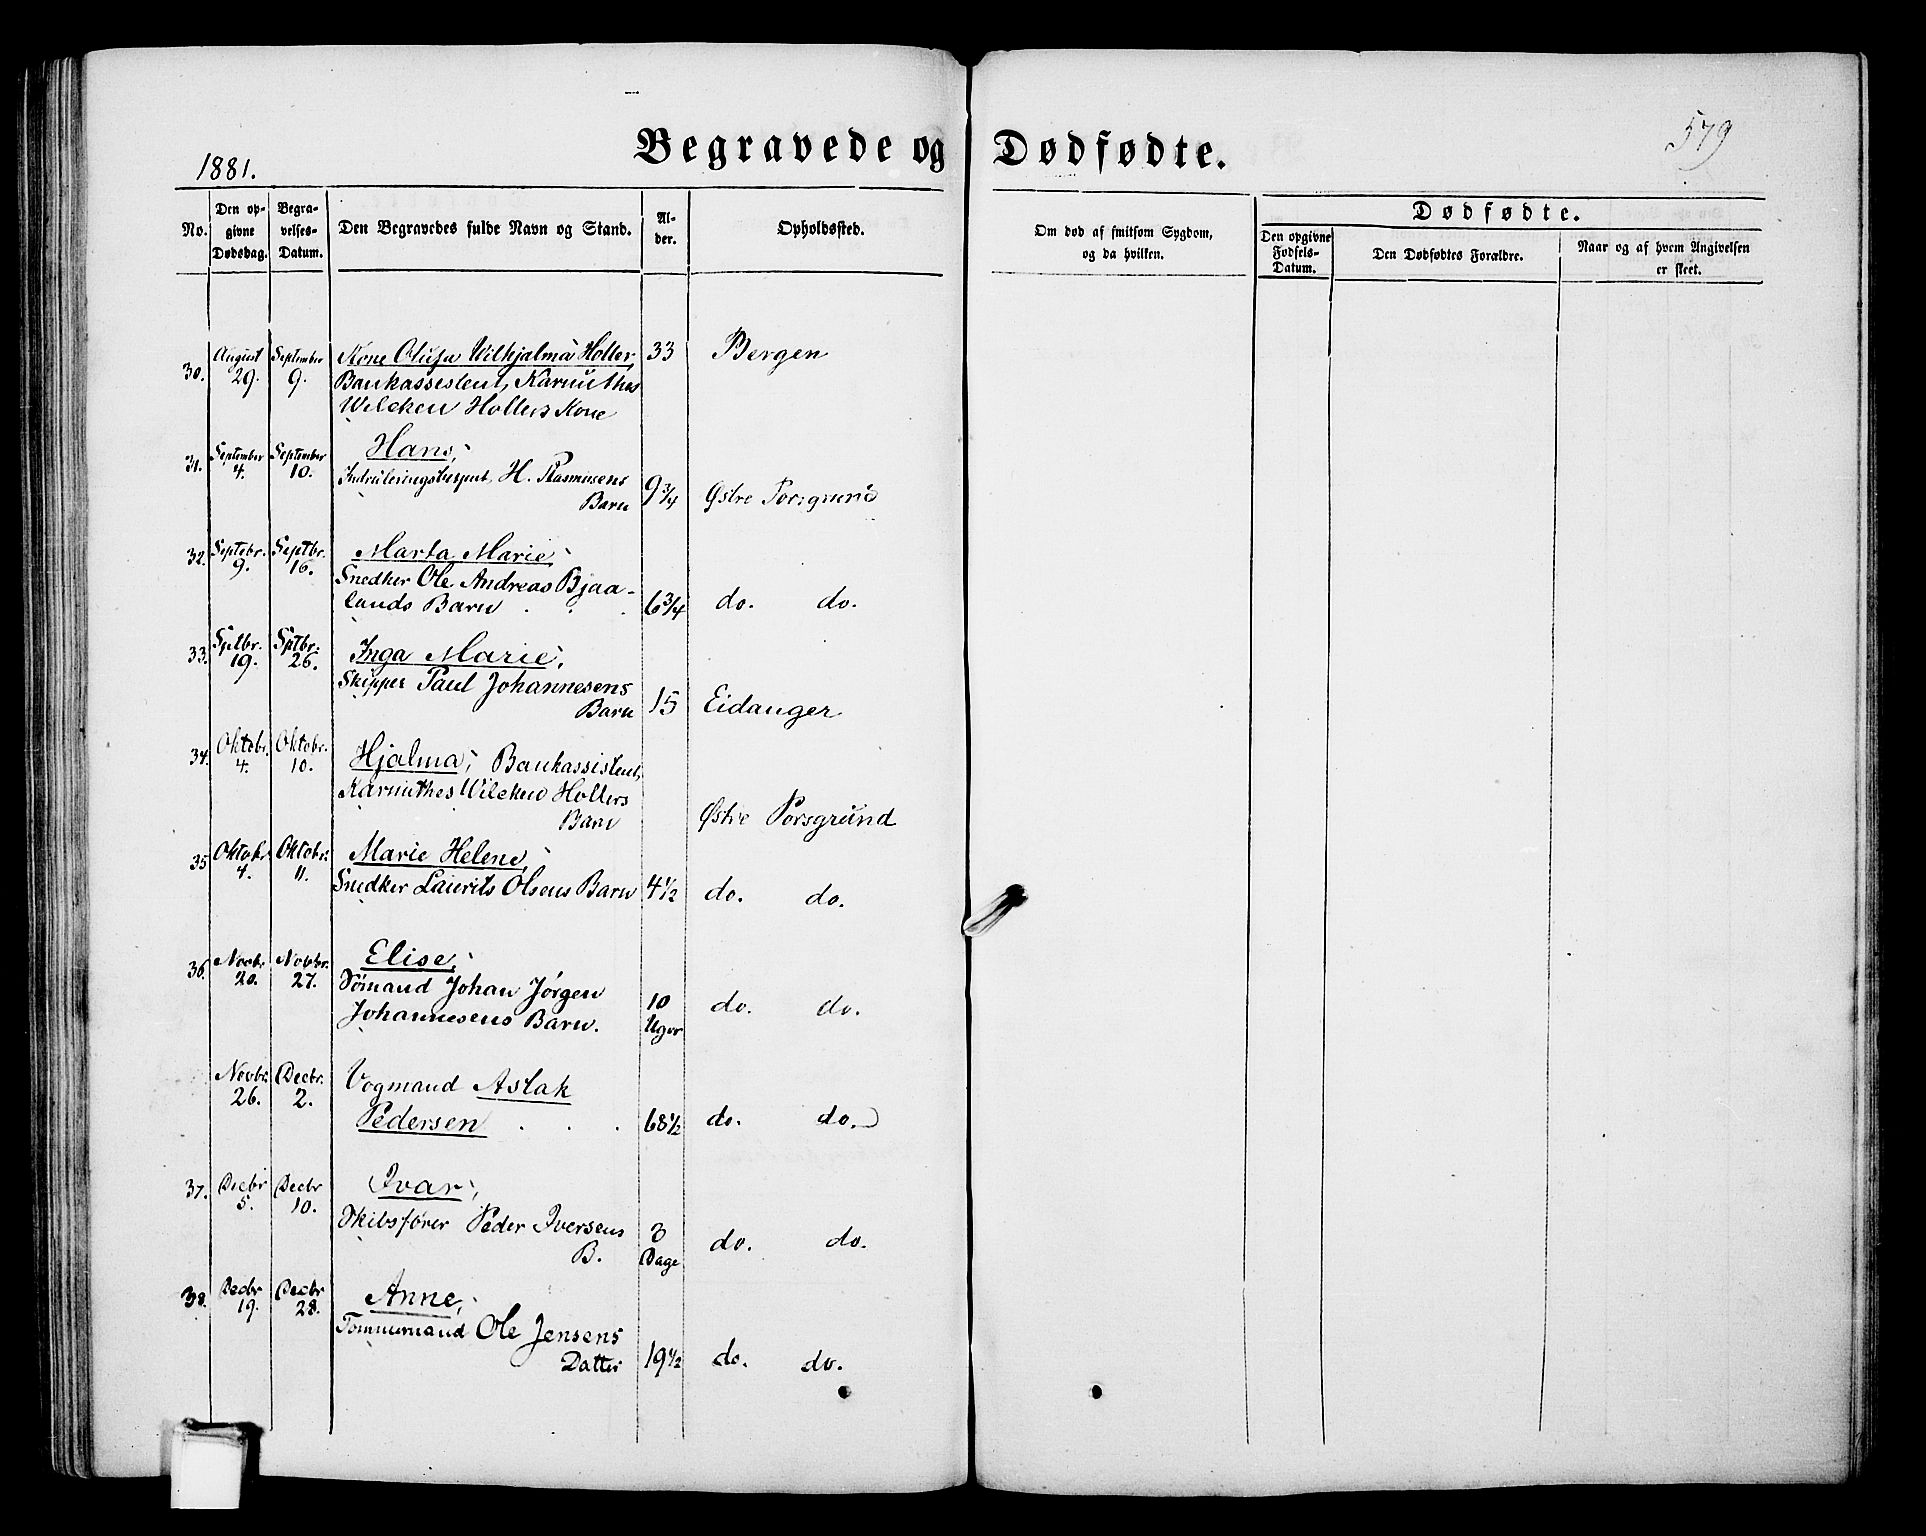 579
1881.
Begravede og Dødfødte.
No.
Den op-
givne
Dødsdag.
Begra-
velses-
Datum.
Den Begravedes fulde Navn og Stand.
Al-
der.
Opholdssted.
Om død af smitsom Sygdom,
og da hvilken.
Dødfødte.
Den opgivne
Fødsels-
Datum.
Den Dødfødtes Forældre.
Naar og af hvem Angivelsen
er skeet.
30. August 29. September 9. Kone Olufa Wilhjalma Holler, 33 Bergen
Bankassistent, Karinthus
Wilcken Hollers Kone
31. September 4. September 10. Hans,
H. Rasmusens
Barn 9 3/4 Østre Porsgrund
32. Septebr. 9. Septbr. 16. Marta Marie,
Snedker Ole Andreas Bjaa-
lands Barn 6 3/4 do. do.
33. Sptbr. 19. Sptbr. 26. Inga Marie,
Skipper Paul Johannesens
Barn 15 Eidanger
34. Oktobr. 4. Oktobr. 10. Hjalma, Bankassistent,
Karinthes Wilcken Hollers
Barn Østre Porsgrund
35 Oktobr. 4. Oktobr. 11. Marie Helene,
Snedker Laurits Olsens Barn 4 1/2 do. do.
36. Novbr 20. Novbr. 27. Elise,
Sømand Johan Jørgen
Johannesens Barn. 10 Uger do. do.
Novbr. 26. Decbr. 2. Vogmand Aslak
Pedersen 68 1/2 do. do.
37. Decbr 5. Decbr 10. Ivar,
Skibsfører Peder Iversens
B. 3 Dage do. do.
38. Decbr 19. Decbr 28. Anne,
Tømmermand Ole Jensens
Datter 19 1/2 do. do.